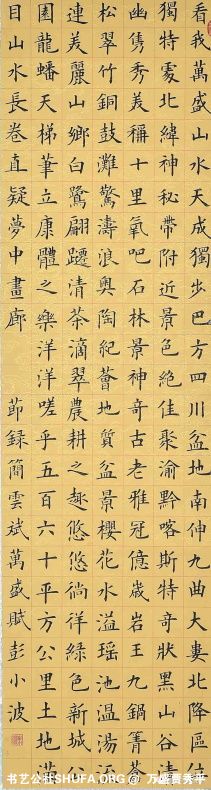 看我萬盛山水天成獨步巴方四川盆地南伸九曲大婁北降區位
獨特處北緯神秘帶附近景色絕佳聚渝黔喀斯特奇狀黑山谷清
幽雋秀美稱十里氧吧石林景神奇古老雅冠億歲岩王九鍋箐莽
松翠竹銅鼓灘驚濤浪奧陶紀薈地質盆景櫻花水溢瑤池溫湯江
連美麗山鄉白鷺翩躚清茶滴翠農耕之趣悠悠徜徉綠色新城公
園龍蟠天梯筆立康體之樂洋洋嗟乎五百六十平方公里土地滿
目山水長卷直疑夢中畫廊 節録簡雲斌萬盛賦彭小波
书艺公社SHUFA.ORG @ 万盛黄秀平